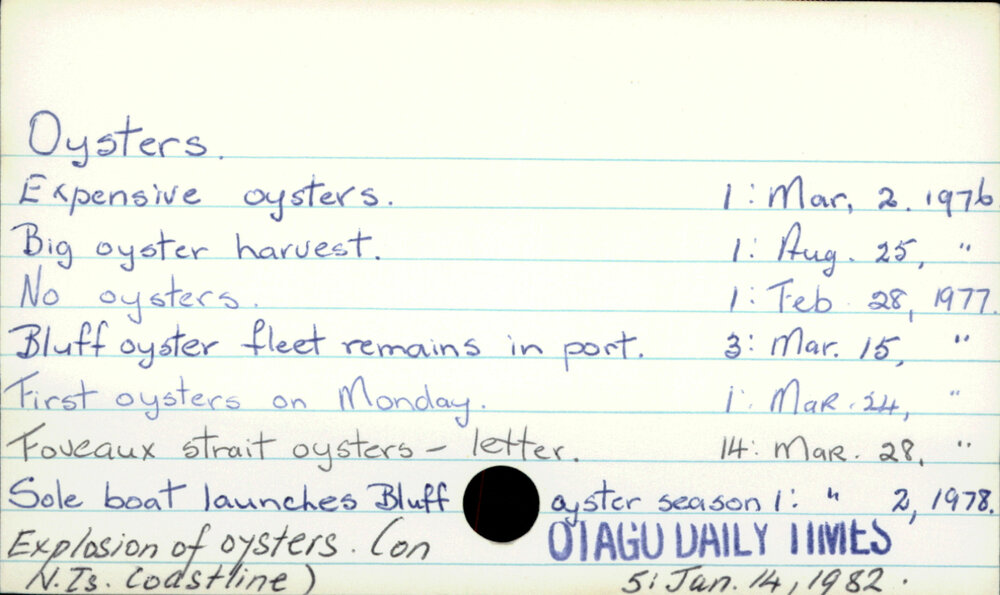 Oysters.
Expensive oysters. 1: Mar, 2. 1976
Big oyster harvest. 1: Aug. 25, "
No oysters. 1: Feb 28, 1977.
Bluff oyster fleet remains in port. 3: Mar. 15, "
First oysters on Monday. 1: Mar. 24, "
Foveaux strait oysters – letter. 14: Mar. 28, "
Sole boat launches Bluff oyster season 1: " 2, 1978.
Explosion of oysters. (on OTAGO DAILY TIMES
N.Is. Coastline) 5: Jan. 14, 1982.